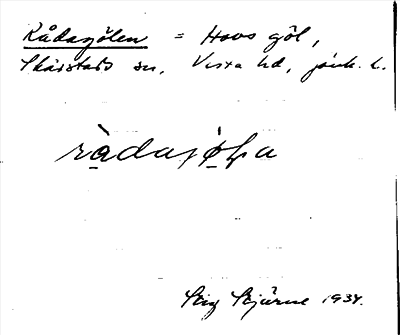 Rådagölen = Hovs göl,
Skärstads sn, Vista hd, jönk. l.
rådajöḷa
Stig Stjärne 1934.